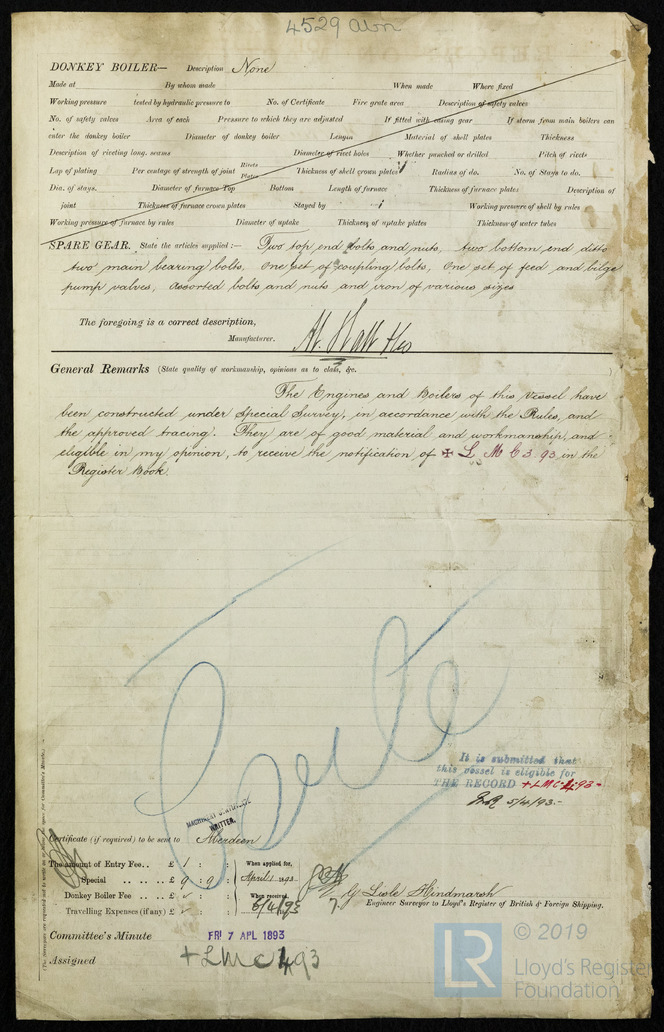 4529 Abn
DONKEY BOILER— Description None
Made at By whom made When made Where fixed
Working pressure tested by hydraulic pressure to No. of Certificate Fire grate area Description of safety valves
No. of safety valves Area of each Pressure to which they are adjusted If fitted with easing gear If steam from main boilers can
enter the donkey boiler Diameter of donkey boiler Length Material of shell plates Thickness
Description of riveting long. seams Diameter of rivet holes Whether punched or drilled Pitch of rivets
Lap of plating Per centage of strength of joint Rivets Plates Thickness of shell crown plates Radius of do. No. of Stays to do.
Dia. of stays. Diameter of furnace Top Bottom Length of furnace Thickness of furnace plates Description of
joint Thickness of furnace crown plates Stayed by Working pressure of shell by rules
Working pressure of furnace by rules Diameter of uptake Thickness of uptake plates Thickness of water tubes
SPARE GEAR. State the articles supplied :— Two top end bolts and nuts, two bottom end ditto
two main bearing bolts, One set of coupling bolts, One set of feed and bilge
pump valves, assorted bolts and nuts and iron of various sizes
The foregoing is a correct description,
Manufacturer.
General Remarks (State quality of workmanship, opinions as to class, &c.
The Engines and Boilers of this Vessel have
been constructed under Special Survey, in accordance with the Rules, and
the approved tracing. They are of good material and workmanship, and
eligible in my opinion, to receive the notification of ✠ L M C 3.93 in the
Register Book.
It is submitted that
this vessel is eligible for
THE RECORD +LMC 4.93-
5/4/93-
MACHINERY
WRITTEN.
Certificate (if required) to be sent to Aberdeen
The amount of Entry Fee.. £ 1 : : When applied for,
Special .. .. .. £ 9 : 9 : April 1893
Donkey Boiler Fee .. .. £ : : When received,
Travelling Expenses (if any) £ : : 5/4/93
G Lisle Hindmarsh
Engineer Surveyor to Lloyd's Register of British & Foreign Shipping.
Committee's Minute FRI 7 APL 1893
Assigned +LMC 4,93
© 2019
LR
Lloyd's Register
Foundation